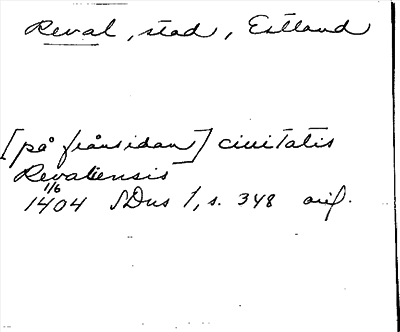 Reval, stad, Estland
[på frånsidan] civitatis
Revaliensis
1/6
1404 SDns 1, s. 348 orig.